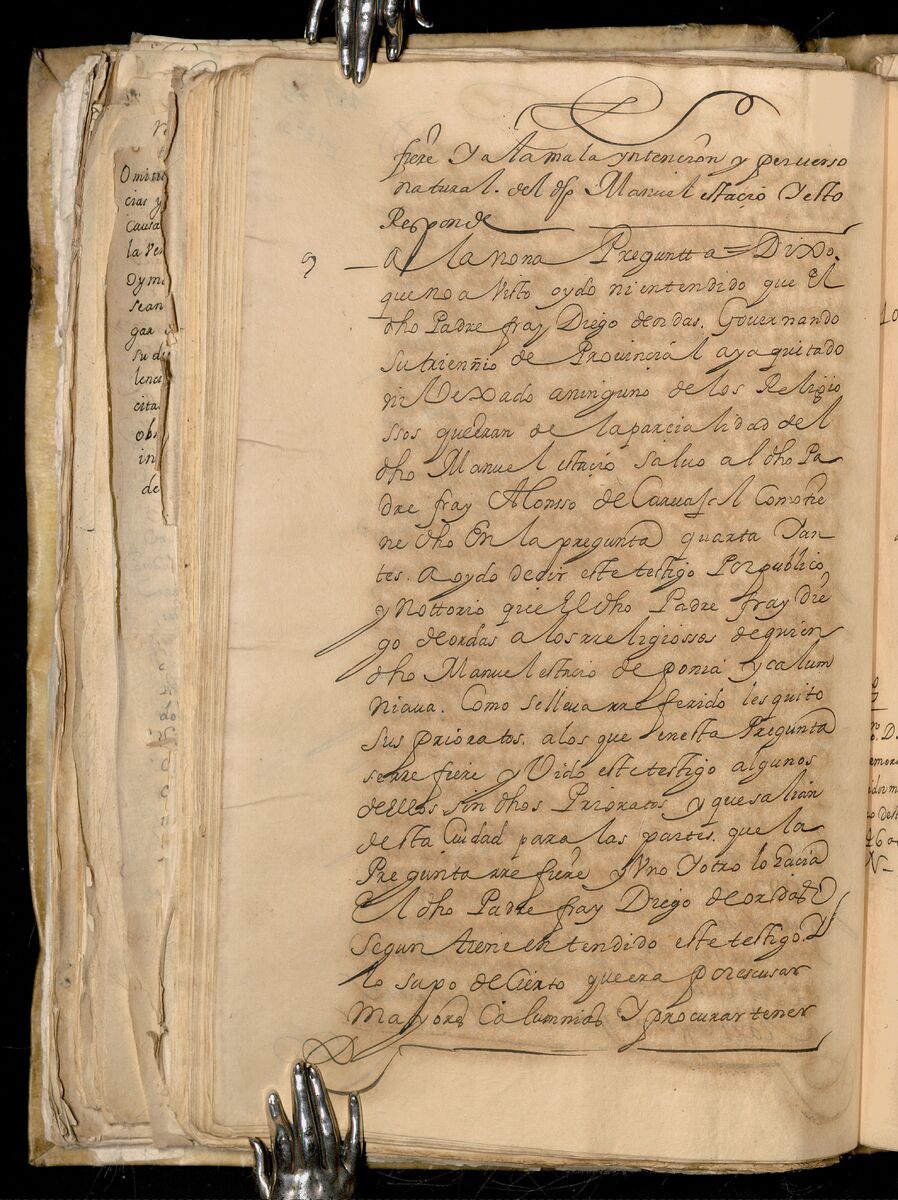 fiere Y a la mala yntencion y peruerso
natural. del dho Manuel estacio Y esto
Responde
9 A la nona Pregunta = Dixo.
que no a Visto oydo ni entendido que El
dho Padre fray Diego de ordas. Gouernando
su trienio de Prouincial aya quitado
ni Dexado a ninguno de los Religio
ssos que Eran de la parcialidad del
dho Manuel estacio saluo al dho Pa
dre fray Alonsso de Caruajal Como tie
ne dho En la pregunta quarta Y an
tes. a oydo decir este testigo Por publico
y Nottorio que El dho Padre fray Die
go de ordas a los rreligiossos de quien
dho Manuel estacio deponia y calum
niaua. Como se lleua rreferido les quito
sus prioratos. a los que en esta Pregunta
se rrefiere y Vido este testigo algunos
dellos sin dhos Prioratos y que salian
desta Ciudad para las partes. que la
Pregunta rrefiere y Vno Y otro lo hacia
El dho Padre fray Diego de ordas
segun tiene entendido este testigo. Y
lo supo de Cierto que era por escusar
Mayores Calumnias Y procurar tener
Omitie
cias y
Causa
la Ver
Dyme
sean
gar
su di
lenc
cita
obs
in
de